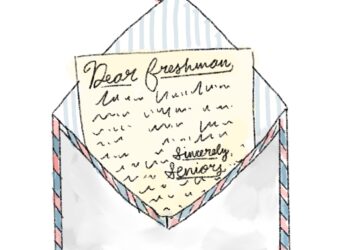 Dear freshman,
Sincerely,
Seniors